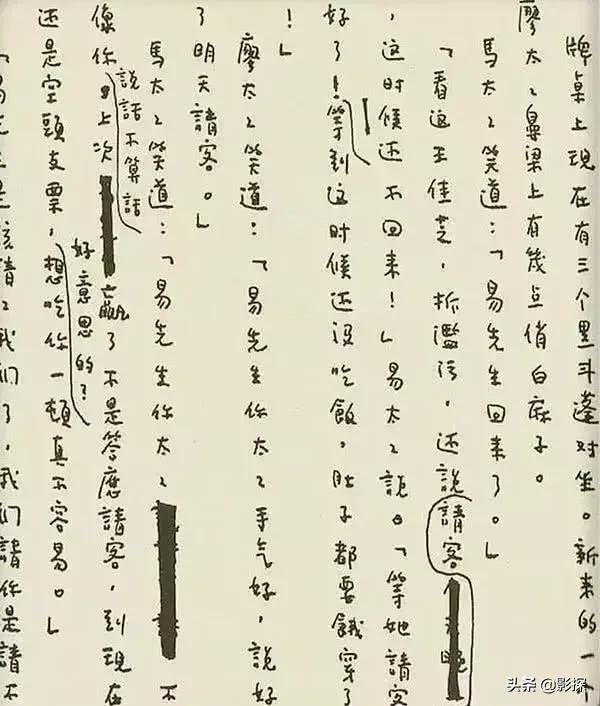 牌桌上現在有三个黑斗蓬对坐。新来的一个
廖太〻鼻梁上有幾点俏白麻子。
馬太〻笑道：「易先生回来了。」
「看这王佳芝，拆濫污，还説請客
，这时候还不回来！」易太〻説。「等她請客
好了！等到这时候还没吃飯，肚子都要餓穿了
！」
廖太〻笑道：「易先生你太〻手气好，説好
了明天請客。」
馬太〻笑道：「易先生你太〻不
説話不算話
像你。上次赢了不是答應請客，到現在
好意思的？
还是空頭支票，想吃你一頓真不容易。」
「易先生是該請〻我们了，我们請你是請不
头条 @影探